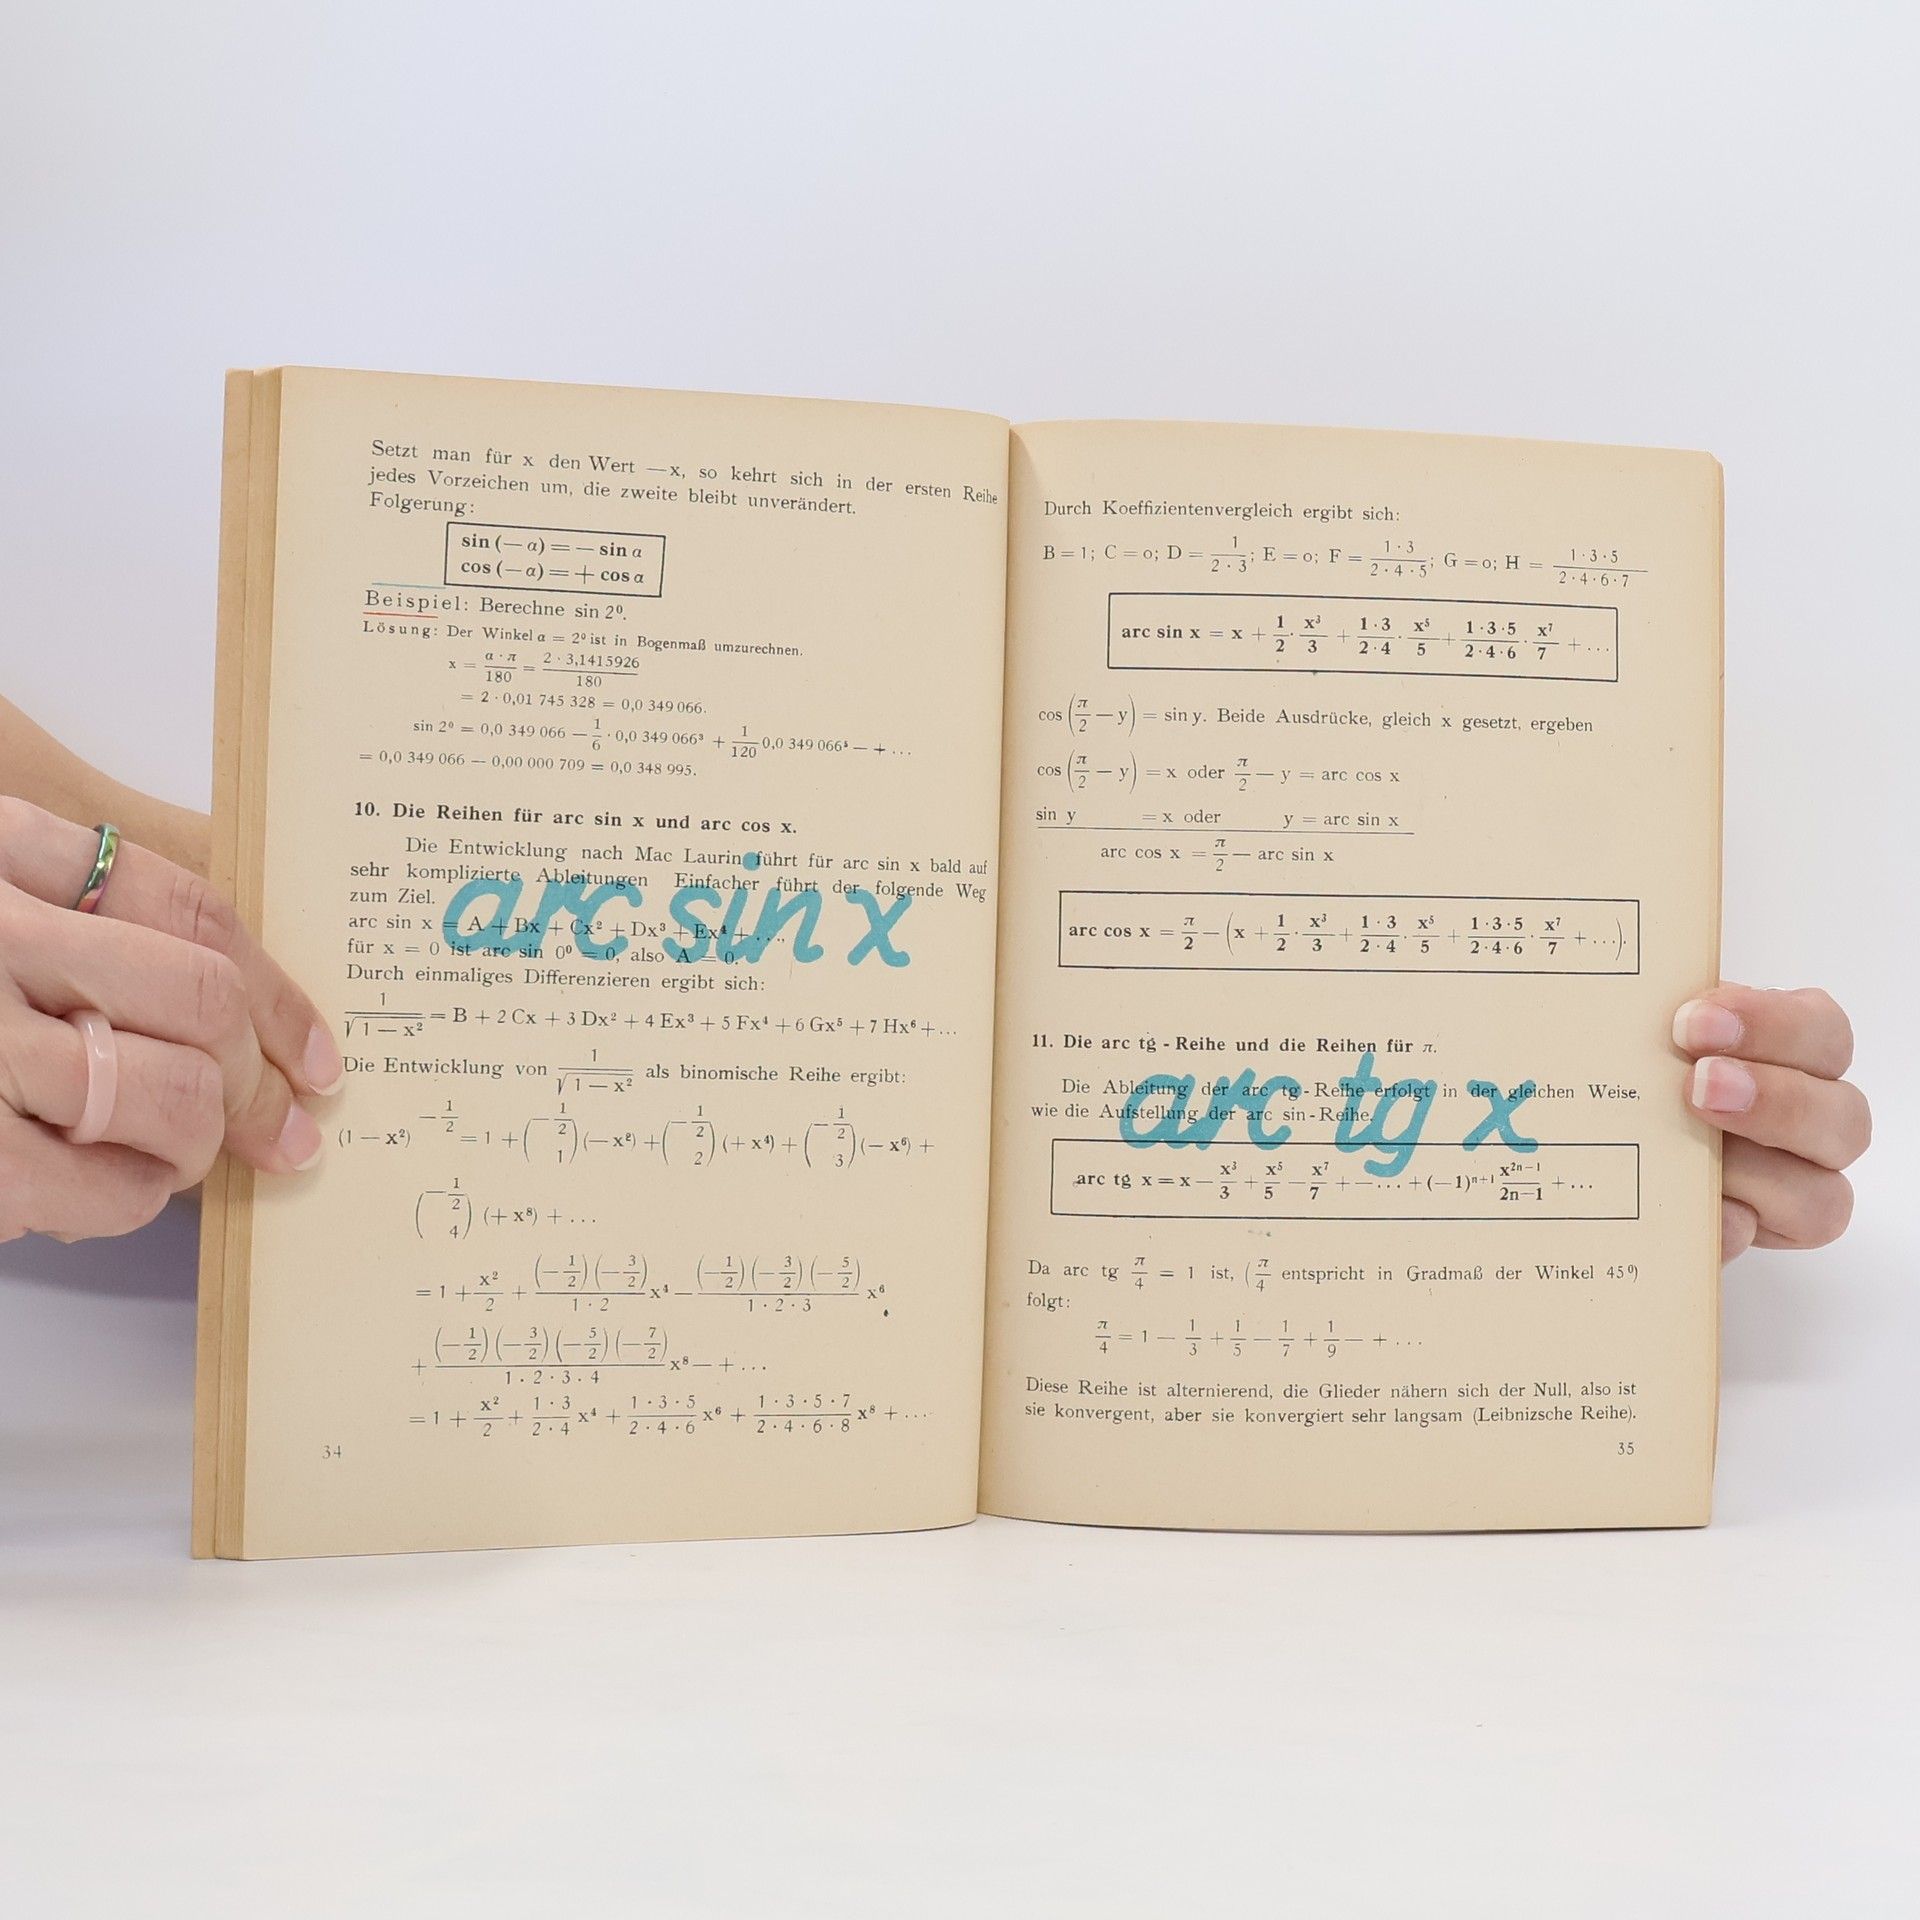 Setzt man für x den Wert —x, so kehrt sich in der ersten Reihe
jedes Vorzeichen um, die zweite bleibt unverändert.
Folgerung:
sin (— α) = — sin α
cos (— α) = + cos α
Beispiel: Berechne sin 2⁰.
Lösung: Der Winkel α = 2⁰ ist in Bogenmaß umzurechnen.
x = α · π / 180 = 2 · 3,1415926 / 180
= 2 · 0,01 745 328 = 0,0 349 066.
sin 2⁰ = 0,0 349 066 — 1/6 · 0,0 349 066³ + 1/120 0,0 349 066⁵ — + ...
= 0,0 349 066 — 0,00 000 709 = 0,0 348 995.
10. Die Reihen für arc sin x und arc cos x.
Die Entwicklung nach Mac Laurin führt für arc sin x bald auf
sehr komplizierte Ableitungen Einfacher führt der folgende Weg
zum Ziel.
arc sin x
arc sin x = A + Bx + Cx² + Dx³ + Ex⁴ + ....
für x = 0 ist arc sin 0⁰ = 0, also A = 0.
Durch einmaliges Differenzieren ergibt sich:
1/√(1 — x²) = B + 2 Cx + 3 Dx² + 4 Ex³ + 5 Fx⁴ + 6 Gx⁵ + 7 Hx⁶ + ...
Die Entwicklung von 1/√(1 — x²) als binomische Reihe ergibt:
(1 — x²)^(—1/2) = 1 + (—1/2 1) (— x²) + (—1/2 2) (+ x⁴) + (—1/2 3) (— x⁶) +
(—1/2 4) (+ x⁸) + ...
= 1 + x²/2 + (—1/2)(—3/2)/(1 · 2) x⁴ — (—1/2)(—3/2)(—5/2)/(1 · 2 · 3) x⁶
+ (—1/2)(—3/2)(—5/2)(—7/2)/(1 . 2 · 3 . 4) x⁸ — + ...
= 1 + x²/2 + (1 · 3)/(2 · 4) x⁴ + (1 · 3 · 5)/(2 · 4 · 6) x⁶ + (1 · 3 · 5 · 7)/(2 · 4 · 6 · 8) x⁸ + ...
34
Durch Koeffizientenvergleich ergibt sich:
B = 1; C = o; D = 1/(2 · 3); E = o; F = (1 · 3)/(2 · 4 · 5); G = o; H = (1 · 3 · 5)/(2 · 4 · 6 · 7)
arc sin x = x + 1/2 · x³/3 + (1 · 3)/(2 · 4) · x⁵/5 + (1 · 3 · 5)/(2 · 4 · 6) · x⁷/7 + ...
cos (π/2 — y) = sin y. Beide Ausdrücke, gleich x gesetzt, ergeben
cos (π/2 — y) = x oder π/2 — y = arc cos x
sin y = x oder y = arc sin x
arc cos x = π/2 — arc sin x
arc cos x = π/2 — (x + 1/2 · x³/3 + (1 · 3)/(2 · 4) · x⁵/5 + (1 · 3 · 5)/(2 · 4 · 6) · x⁷/7 + ...).
11. Die arc tg - Reihe und die Reihen für π.
Die Ableitung der arc tg - Reihe erfolgt in der gleichen Weise,
wie die Aufstellung der arc sin - Reihe.
arc tg x
arc tg x = x — x³/3 + x⁵/5 — x⁷/7 + — ... + (— 1)ⁿ⁺¹ x²ⁿ⁻¹/(2n—1) + ...
Da arc tg π/4 = 1 ist, (π/4 entspricht in Gradmaß der Winkel 45⁰)
folgt:
π/4 = 1 — 1/3 + 1/5 — 1/7 + 1/9 — + ...
Diese Reihe ist alternierend, die Glieder nähern sich der Null, also ist
sie konvergent, aber sie konvergiert sehr langsam (Leibnizsche Reihe).
35